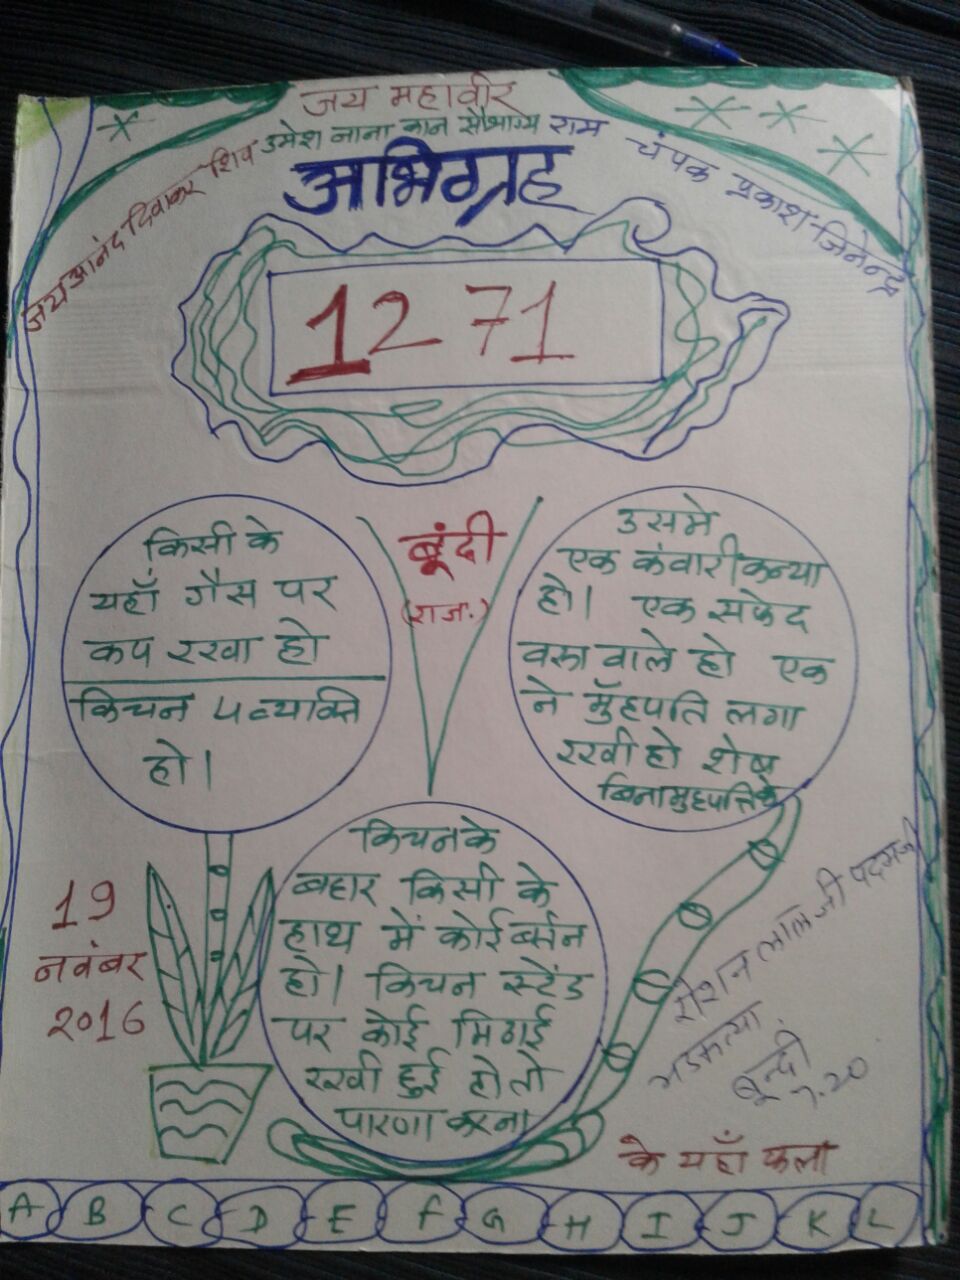 जय महावीर
जय आनंद दिवाकर शिव उमेश नाना कान सौभाग्य राम चंपक प्रकाश-जिनेन्द्र
अभिग्रह
1271
बूंदी
(राज.)
किसी के
यहाँ गैस पर
कप रखा हो
किचन ५ व्यक्ति
हो।
उसमे
एक कंवारी कन्या
हो। एक सफेद
वस्त्र वाले हो एक
ने मुँहपति लगा
रखी हो शेष
बिना मुहपत्ति के
किचन के
बहार किसी के
हाथ में कोई बर्सन
हो। किचन स्टेंड
पर कोई मिठाई
रखी हुई हो तो
पारणा करना
19
नवंबर
2016
रोशन लाल जी पदमजी
भडकत्या
बून्दी
7.20
के यहाँ फला
A B C D E F G H I J K L